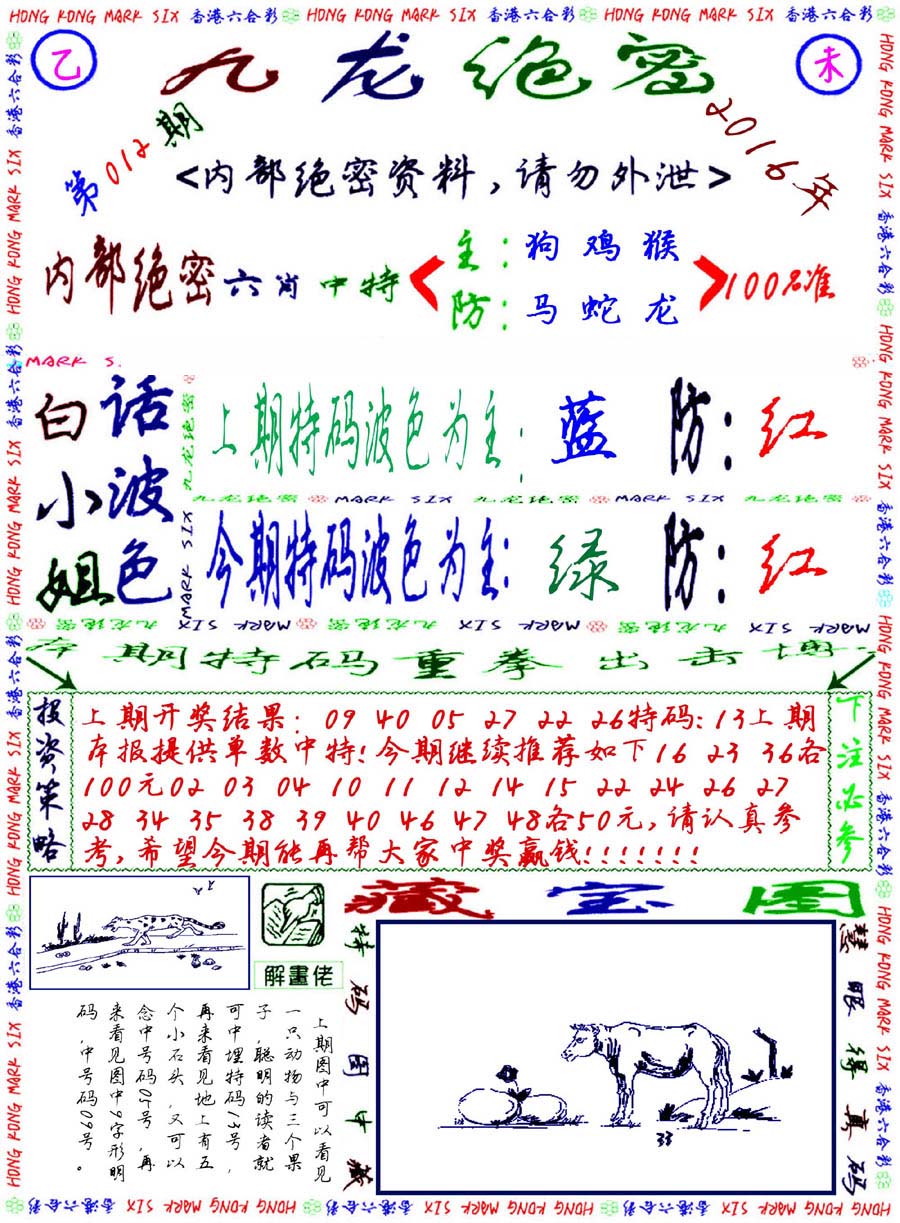 HONG KONG MARK SIX 香港六合彩 HONG KONG MARK SIX 香港六合彩 HONG KONG MARK SIX 香港六合彩
乙
九龙绝密
未
第012期
2016年
<内部绝密资料,请勿外泄>
内部绝密六肖中特
主:狗鸡猴
防:马蛇龙
100%准
MARK S.
白话小波姐色
上期特码波色为主:蓝 防:红
九龙绝密 MARK SIX 九龙绝密 MARK SIX 九龙绝密
今期特码波色为主:绿 防:红
MARK SIX 九龙绝密 MARK SIX 九龙绝密 MARK SIX 九龙绝密 MARK SIX
本期特码重拳出击博
投资策略
上期开奖结果:09 40 05 27 22 26特码:13上期
本报提供单数中特!今期继续推荐如下16 23 36各
100元02 03 04 10 11 12 14 15 22 24 26 27
28 34 35 38 39 40 46 47 48各50元,请认真参
考,希望今期能再帮大家中奖赢钱!!!!!!!
下注必参
解畫佬
藏宝图
上期图中可以看见
一只动物与三个果
子,聪明的读者就
可中埋特码13号,
再来看见地上有五
个小石头,又可以
念中号码05号,再
来看见图中9字形明
码,中号码09号。
特码图中藏
33
慧眼得真码
HONG KONG MARK SIX 香港六合彩 HONG KONG MARK SIX 香港六合彩 HONG KONG MARK SIX 香港六合彩